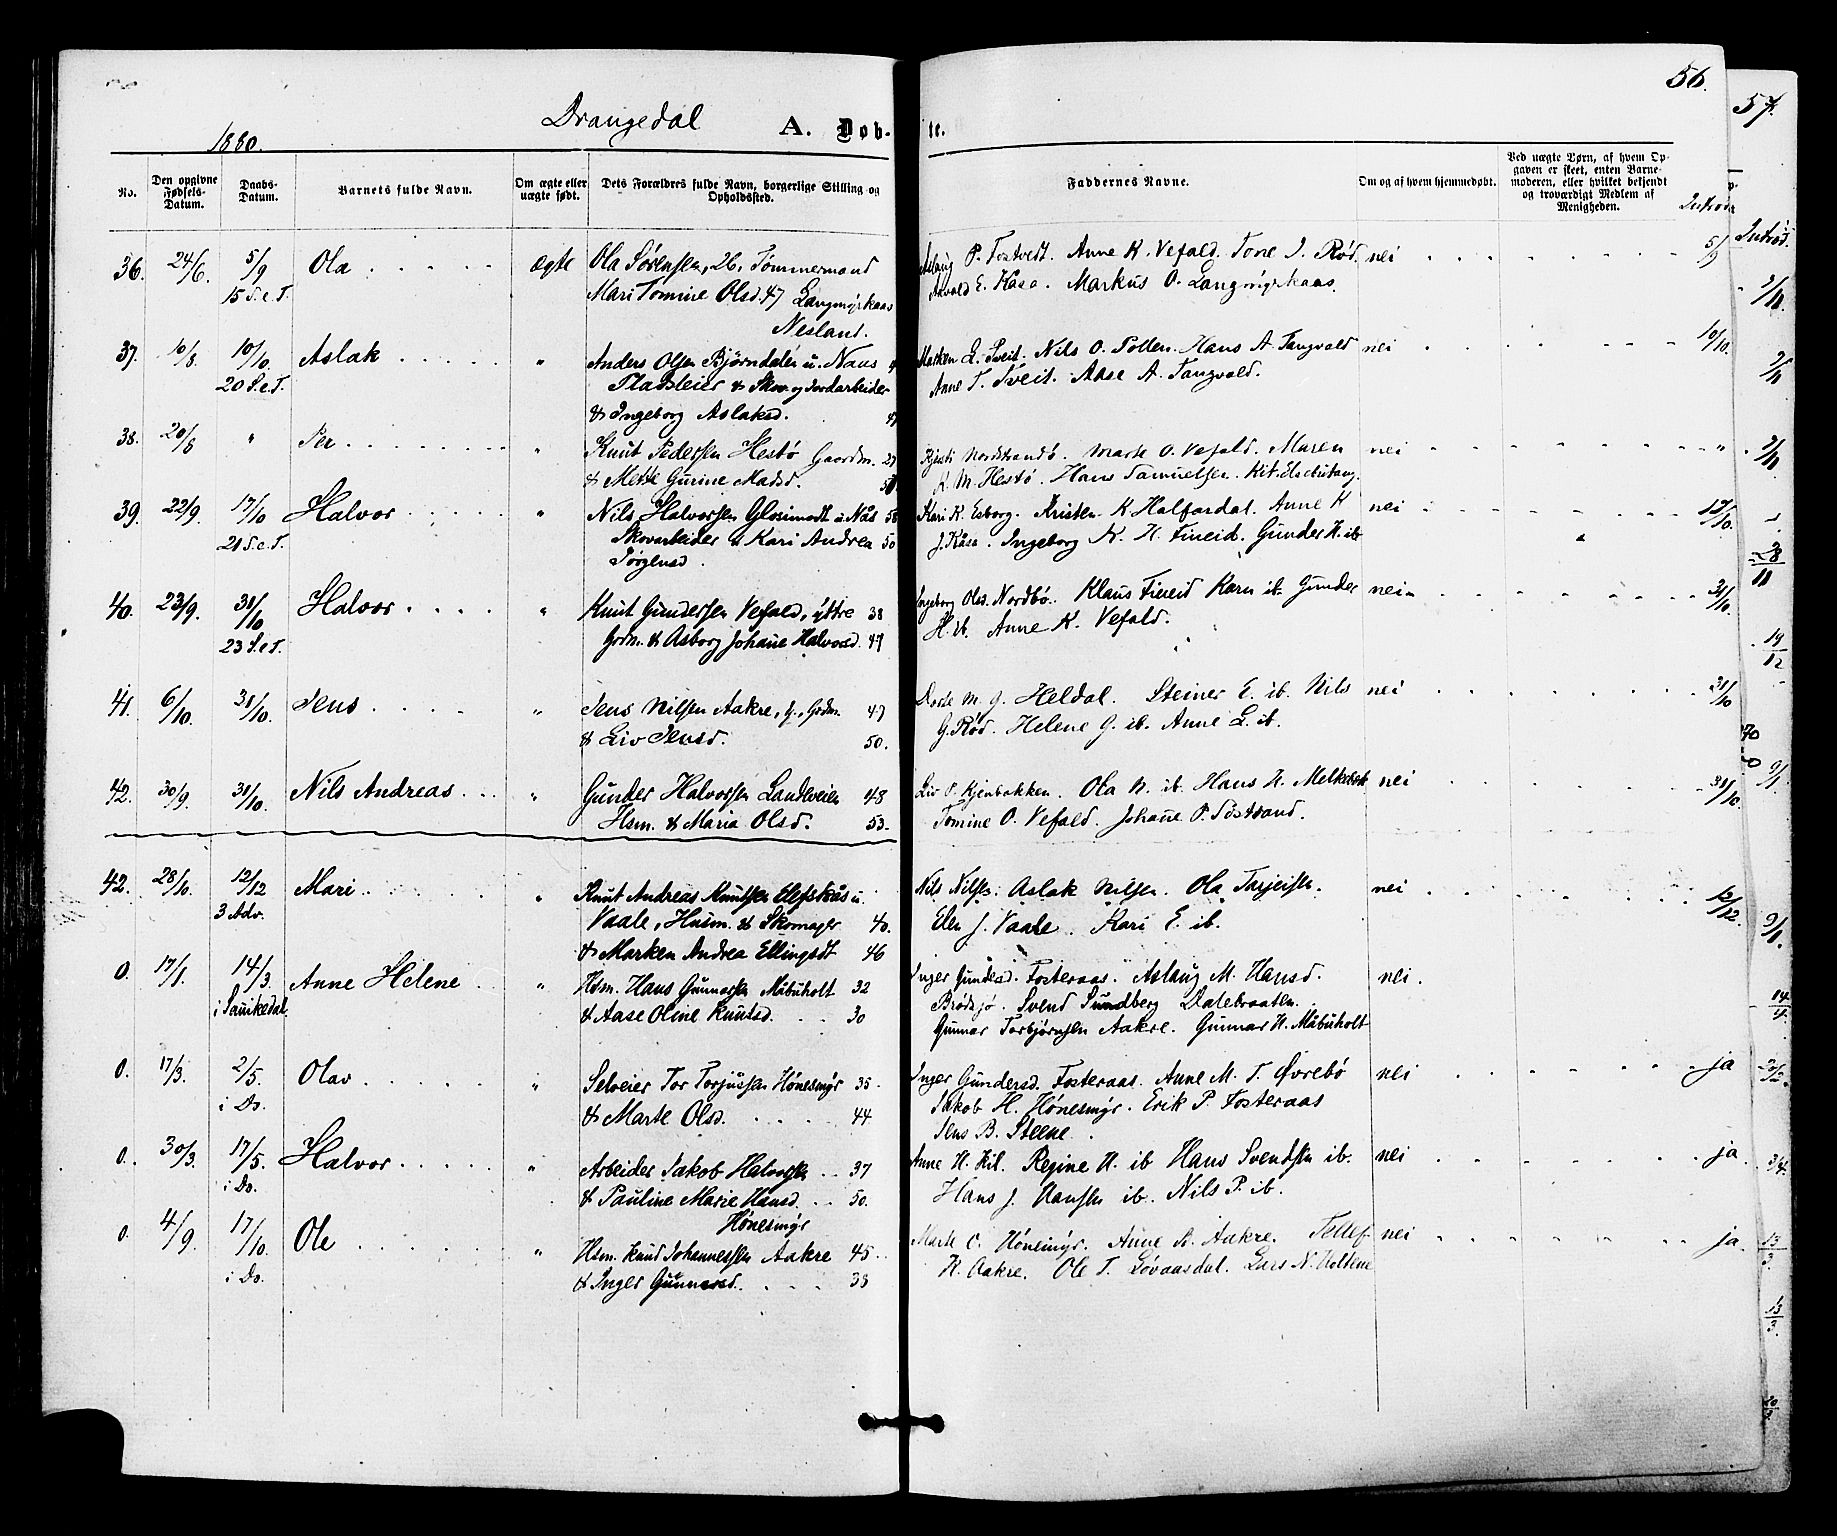 56.
57.
Drangedal A. Døb- te.
1880.
No. Den opgivne Fødsels-Datum. Daabs-Datum. Barnets fulde Navn. Om ægte eller uægte født. Dets Forældres fulde Navn, borgerlige Stilling og Opholdssted. Faddernes Navne. Om og af hvem hjemmedøbt. Ved uægte Børn, af hvem Opgaven er skeet, enten Barnemoderen, eller hvilket bekjendt og troværdigt Medlem af Menigheden.
Introd.
36. 24/6. 5/9 Ola . . . . . ægte Ola Sørensen, 26, Tømmermand Aslaug P. Tostvedt. Anne K. Vefald. Tone J. Rød. nei 5/9
15 S.e.T. Mari Tomine Olsd. 47 Langmyrkaas Aavald E. Kåsa. Markus O. Langmyrkaas.
Nesland.
37. 10/8. 10/10. Aslak . . . . " Anders Olsen Bjørndalen u. Naas Marken L. Tveit. Nils O. Pollen. Hans A. Tangvald nei 10/10.
20 S.e.T. Pladsleier & Skov og Jordarbeider Anne T. Tveit. Aase A. Tangvald.
& Ingeborg Aslaksd.
38. 20/8 " Per . . . . . " Knut Pedersen Hestø Gaardm. 27 Kjersti Nordstrandb. Marte O. Vefald. Maren nei "
& Mette Gurine Madsd. K. M. Hestø. Hans Samuelsen.
39. 22/9. 17/10 Halvor . . . . " Nils Halvorsen Glosimodt u. Nås 58 Kari K. Esborg. Kristen K. Halfardal. Anne K nei 17/10.
21 S.e.T. Skovarbeider & Kari Andrea 50 J. Kåsa. Ingeborg N. H. Fineid. Gunder H. ib
Jørgensd.
40. 23/9. 31/10 Halvor . . . . " Knut Gundersen Vefald, ytre 38 Ingeborg Olsd. Nordbø. Klaus Fineid Karn ib. Gunder nei 31/10.
23 S.e.T. Grdm. & Asborg Johane Halvorsd. 47 H. ib. Anne K. Vefald.
41. 6/10. 31/10. Jens . . . . " Jens Nilsen Aakre, y., Grdm. 47 Dorte M. G. Heldal. Steiner E. ib. Nils nei 31/10
& Liv Jensd. 50. G. Rød. Helene G. ib. Anne L. ib.
42. 30/9. 31/10. Nils Andreas . . . " Gunder Halvorsen Landsveien 48 Liv P. Kjenbakken. Ola N. ib. Hans H. nei 31/10.
Hsm. & Maria Olsd. 53. Tomine O. Vefald. Johane P. Tostrand.
42. 28/10. 12/12 Mari . . " Knut Andreas Knutsen Elefskås u. Nils Nilsen. Aslak Nilsen. Ola Tarjeisen. nei 12/12.
3 Adv. Vaale, Husm. & Skomager 40. Elen J. Vaale. Kari E. ib.
& Marken Andrea Ellingsdt 46
0. 17/1. 14/3. Anne Helene " Hsm. Hans Gunnarsen Måbuholt 32 Inger Gundersd. Fosteraas. Aslaug M. Hansd. nei.
i Sauikedal. & Aase Oline Knutsd. . . . 30 Brødsjø. Svend Sundberg Dalebraaten.
Gunnar Torbjørnsen Aakre. Gunnar H. Måbuholt
0. 17/3. 2/5. Olav . . . . . " Selveier Tor Torjusen Hønesmyr 35. Inger Gundersd. Fosteraas. Anne M. T. Øvrebø nei ja
i Do. & Marte Olsd. . . . . . 44 Jakob H. Hønesmyr. Erik P. Fosteraas
Jens B. Steene.
0. 30/3. 17/5. Halvor . . . . " Arbeider Jakob Halvorsen . . 37 Anne H. Kil. Regine H. ib Hans Svendsen ib. nei ja.
i Do. & Pauline Marie Hansd. . . 50. Hans J. Hansen ib. Nils P. ib.
Hønesmyr
0. 4/9. 17/10. Ole . . . . . " Hsm. Knud Johannessen Aakre 45 . . Marte O. Hønesmyr. Anne A. Aakre. Tellef nei ja.
i Do. & Inger Gunnarsd. . . . . 38 K. Aakre. Ole T. Løvaasdal. Lars N. Holtene
Introd.